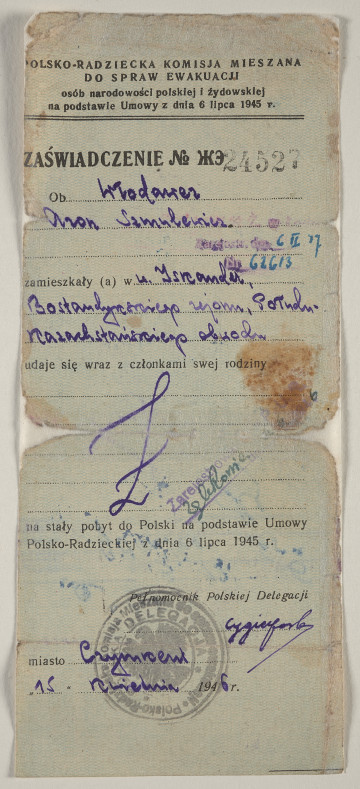 POLSKO-RADZIECKA KOMISJA MIESZANA
DO SPRAW EWAKUACJI
osób narodowości polskiej i żydowskiej
na podstawie Umowy z dnia 6 lipca 1945 r.
ZAŚWIADCZENIE № ЖЭ 24527
Ob Włodawer
Aron Szmulewicz
62613
zamieszkały (a) w u. Iskander,
Bostandykskiego rejonu, Połudn.
Kazachstańskiego obwodu
udaje się wraz z członkami swej rodziny
na stały pobyt do Polski na podstawie Umowy
Polsko-Radzieckiej z dnia 6 lipca 1945 r.
Pełnomocnik Polskiej Delegacji
DELEGACJA
miasto Czymkent
15. kwietnia 1946 r.